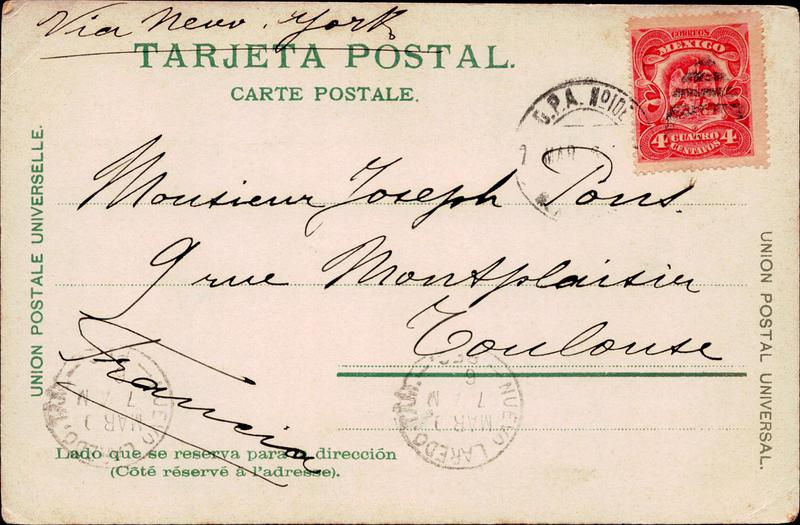 Via New York
TARJETA POSTAL.
CARTE POSTALE.
CORREOS
MEXICO
4 CUATRO 4
CENTAVOS
MAR
UNION POSTALE UNIVERSELLE.
Monsieur Joseph Pons.
9 rue Montplaisir
Toulouse
Francia
UNION POSTAL UNIVERSAL.
NUEVO LAREDO, TAM.
MAR
7 AM
NUEVO LAREDO, TAM.
MAR
7 AM
Lado que se reserva para la dirección
(Côté réservé à l'adresse).